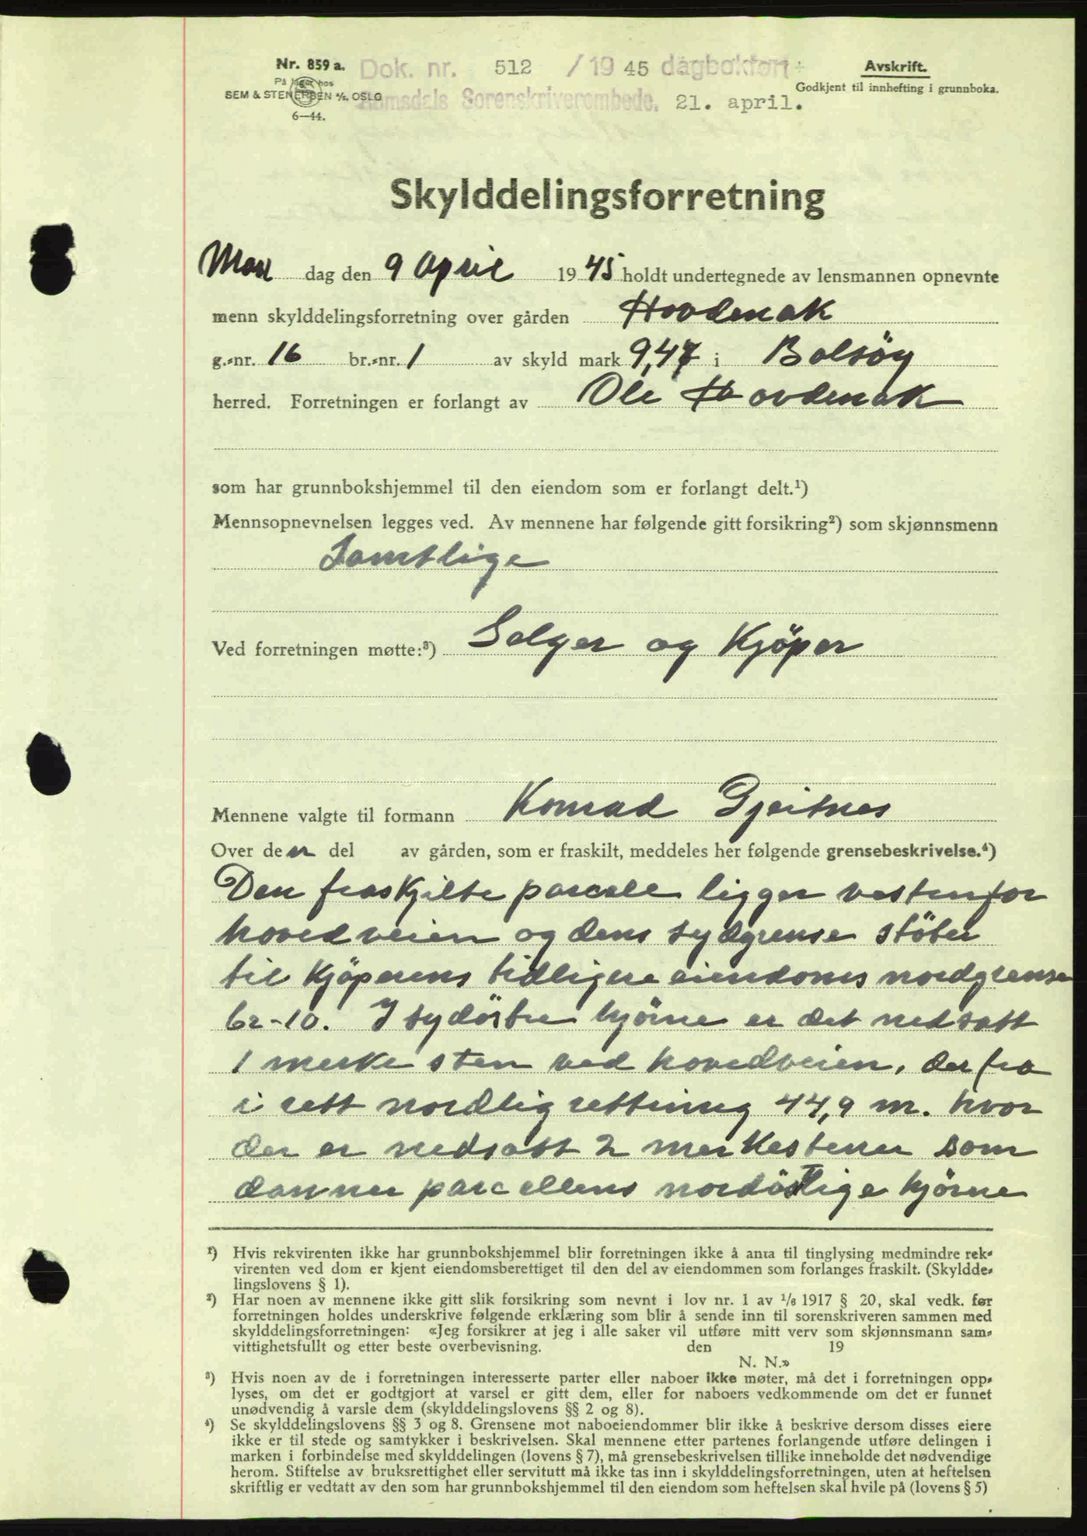 Nr. 859 a.
På lager hos
SEM & STENERSEN A/S, OSLO
6—44.
Dok. nr. 512 /19 45 dagbokført
Romsdals Sorenskriverembede. 21. april.
Avskrift.
Godkjent til innhefting i grunnboka.
Skylddelingsforretning
Man dag den 9 April 1945 holdt undertegnede av lensmannen opnevnte
menn skylddelingsforretning over gården Hovdenak
g.-nr. 16 br.-nr. 1 av skyld mark 9,47 i Bolsöy
herred. Forretningen er forlangt av Ole Hovdenak
som har grunnbokshjemmel til den eiendom som er forlangt delt.¹)
Mennsopnevnelsen legges ved. Av mennene har følgende gitt forsikring²) som skjønnsmenn
Samtlige
Ved forretningen møtte:³) Selger og Kjöper
Mennene valgte til formann Konrad Gjeitnes
Over den del av gården, som er fraskilt, meddeles her følgende grensebeskrivelse.⁴)
Den fraskjilte parcele ligger vestenfor
hovedveien og dens sydgrense stöter
til Kjöperens tidligere eiendoms nordgrense
br-10. I sydöstre hjörne er det nedsatt
1 merke sten ved hovedveien, derfra
i rett nordlig rettning 44,9 m. hvor
der er nedsatt 2 merkestener som
danner parcellens nordöstlige hjörne
¹) Hvis rekvirenten ikke har grunnbokshjemmel blir forretningen ikke å anta til tinglysing medmindre rek-
virenten ved dom er kjent eiendomsberettiget til den del av eiendommen som forlanges fraskilt. (Skyldde-
lingslovens § 1).
²) Har noen av mennene ikke gitt slik forsikring som nevnt i lov nr. 1 av ¹/₆ 1917 § 20, skal vedk. før
forretningen holdes underskrive følgende erklæring som blir å sende inn til sorenskriveren sammen med
skylddelingsforretningen: «Jeg forsikrer at jeg i alle saker vil utføre mitt verv som skjønnsmann sam-
vittighetsfullt og etter beste overbevisning. den 19
N. N.»
³) Hvis noen av de i forretningen interesserte parter eller naboer ikke møter, må det i forretningen opp-
lyses, om det er godtgjort at varsel er gitt dem, eller for naboers vedkommende om det er funnet
unødvendig å varsle dem (skylddelingslovens §§ 2 og 8).
⁴) Se skylddelingslovens §§ 3 og 8. Grensene mot naboeiendommer blir ikke å beskrive dersom disses eiere
ikke er til stede og samtykker i beskrivelsen. Skal mennene etter partenes forlangende utføre delingen i
marken i forbindelse med skylddelingen (lovens § 7), må grensebeskrivelsen tillike inneholde det nødvendige
herom. Stiftelse av bruksrettighet eller servitutt må ikke tas inn i skylddelingsforretningen, uten at heftelsen
skriftlig er vedtatt av den som har grunnbokshjemmel til den eiendom som heftelsen skal hvile på (lovens § 5)